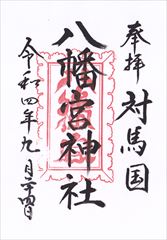 奉拝
対馬国
八幡宮神社
令和四年九月二十四日